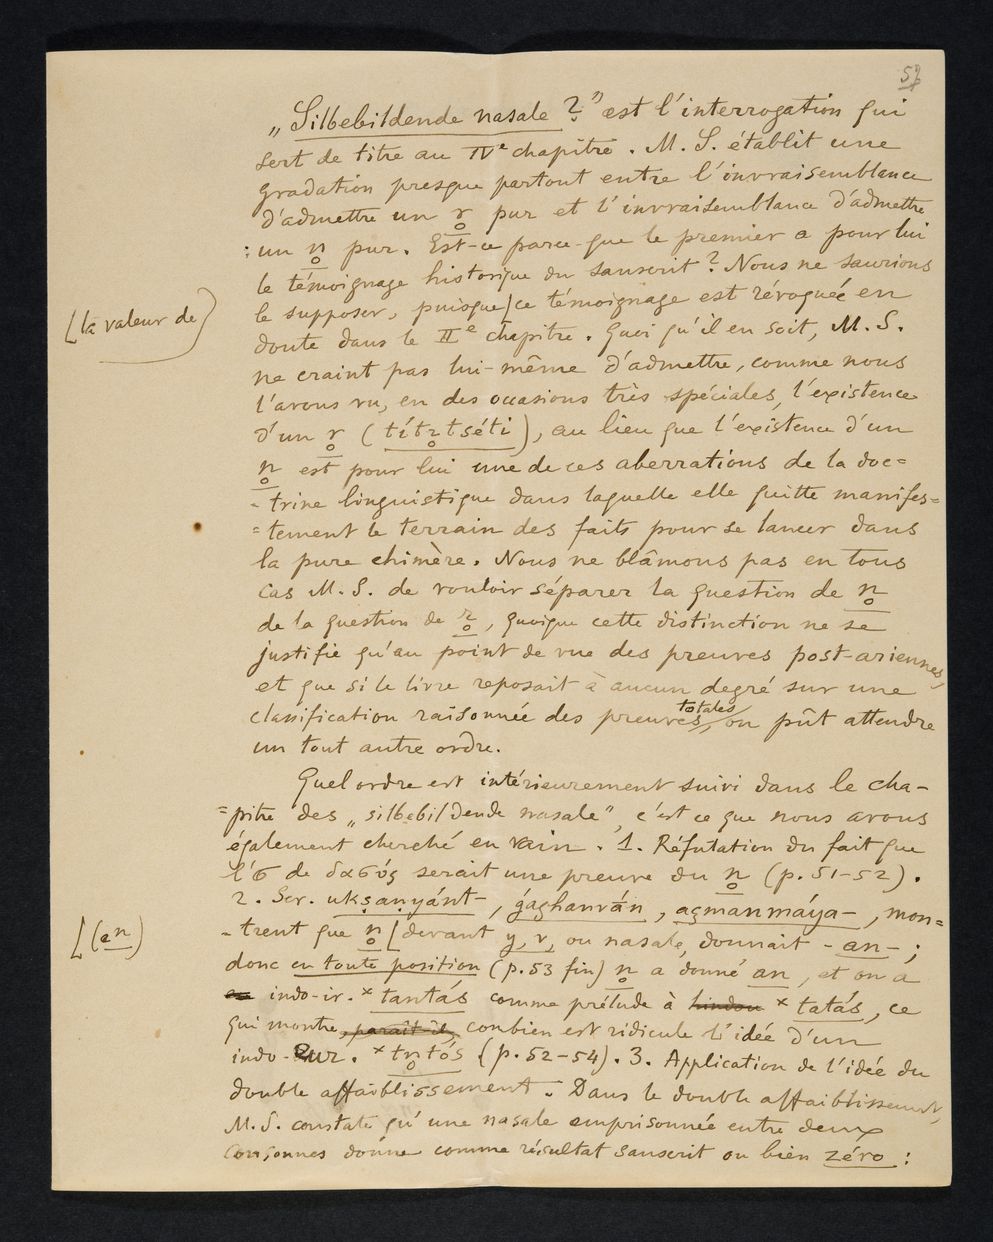 57
„Silbebildende nasale ?” est l'interrogation qui
sert de titre au IVe chapitre. M. S. établit une
gradation presque partout entre l'invraisemblance
d'admettre un r̥ pur et l'invraisemblance d'admettre
un n̥ pur. Est-ce parce-que le premier a pour lui
le témoignage historique du sanscrit ? Nous ne saurions
le supposer, puisque] ce témoignage est révoquée en
[la valeur de]
doute dans le IIe chapitre. Quoi qu'il en soit, M. S.
ne craint pas lui-même d'admettre, comme nous
l'avons vu, en des occasions très spéciales, l'existence
d'un r̥ (títr̥tséti), au lieu que l'existence d'un
n̥ est pour lui une de ces aberrations de la doc=
-trine linguistique dans laquelle elle quitte manifes=
=tement le terrain des faits pour se lancer dans
la pure chimère. Nous ne blâmons pas en tous
cas M. S. de vouloir séparer la question de n̥
de la question de r̥, quoique cette distinction ne se
justifie qu'au point de vue des preuves post-ariennes,
et que si le livre reposait à aucun degré sur une
classification raisonnée des preuves totales, on pût attendre
un tout autre ordre.
Quel ordre est intérieurement suivi dans le cha-
=pitre des „silbebildende nasale”, c'est ce que nous avons
également cherché en vain. 1. Réfutation du fait que
l'σ de δασύς serait une preuve du n̥ (p. 51-52).
2. Scr. ukṣaṇyánt-, ǵaghanván, açmanmáya-, mon=
-trent que n̥ [devant y, v, ou nasale, donnait -an-;
[(en)
donc en toute position (p. 53 fin) n̥ a donné an, et on a
en indo-ir. ×tantás comme prélude à hindou ×tatás, ce
qui montre, paraît-il, conbien est ridicule l'idée d'un
indo-eur. ×tn̥tós (p. 52-54). 3. Application de l'idée du
double affaiblissement. Dans le double affaiblissement,
M. S. constate qu'une nasale emprisonnée entre deux
consonnes donne comme résultat sanscrit ou bien zéro :